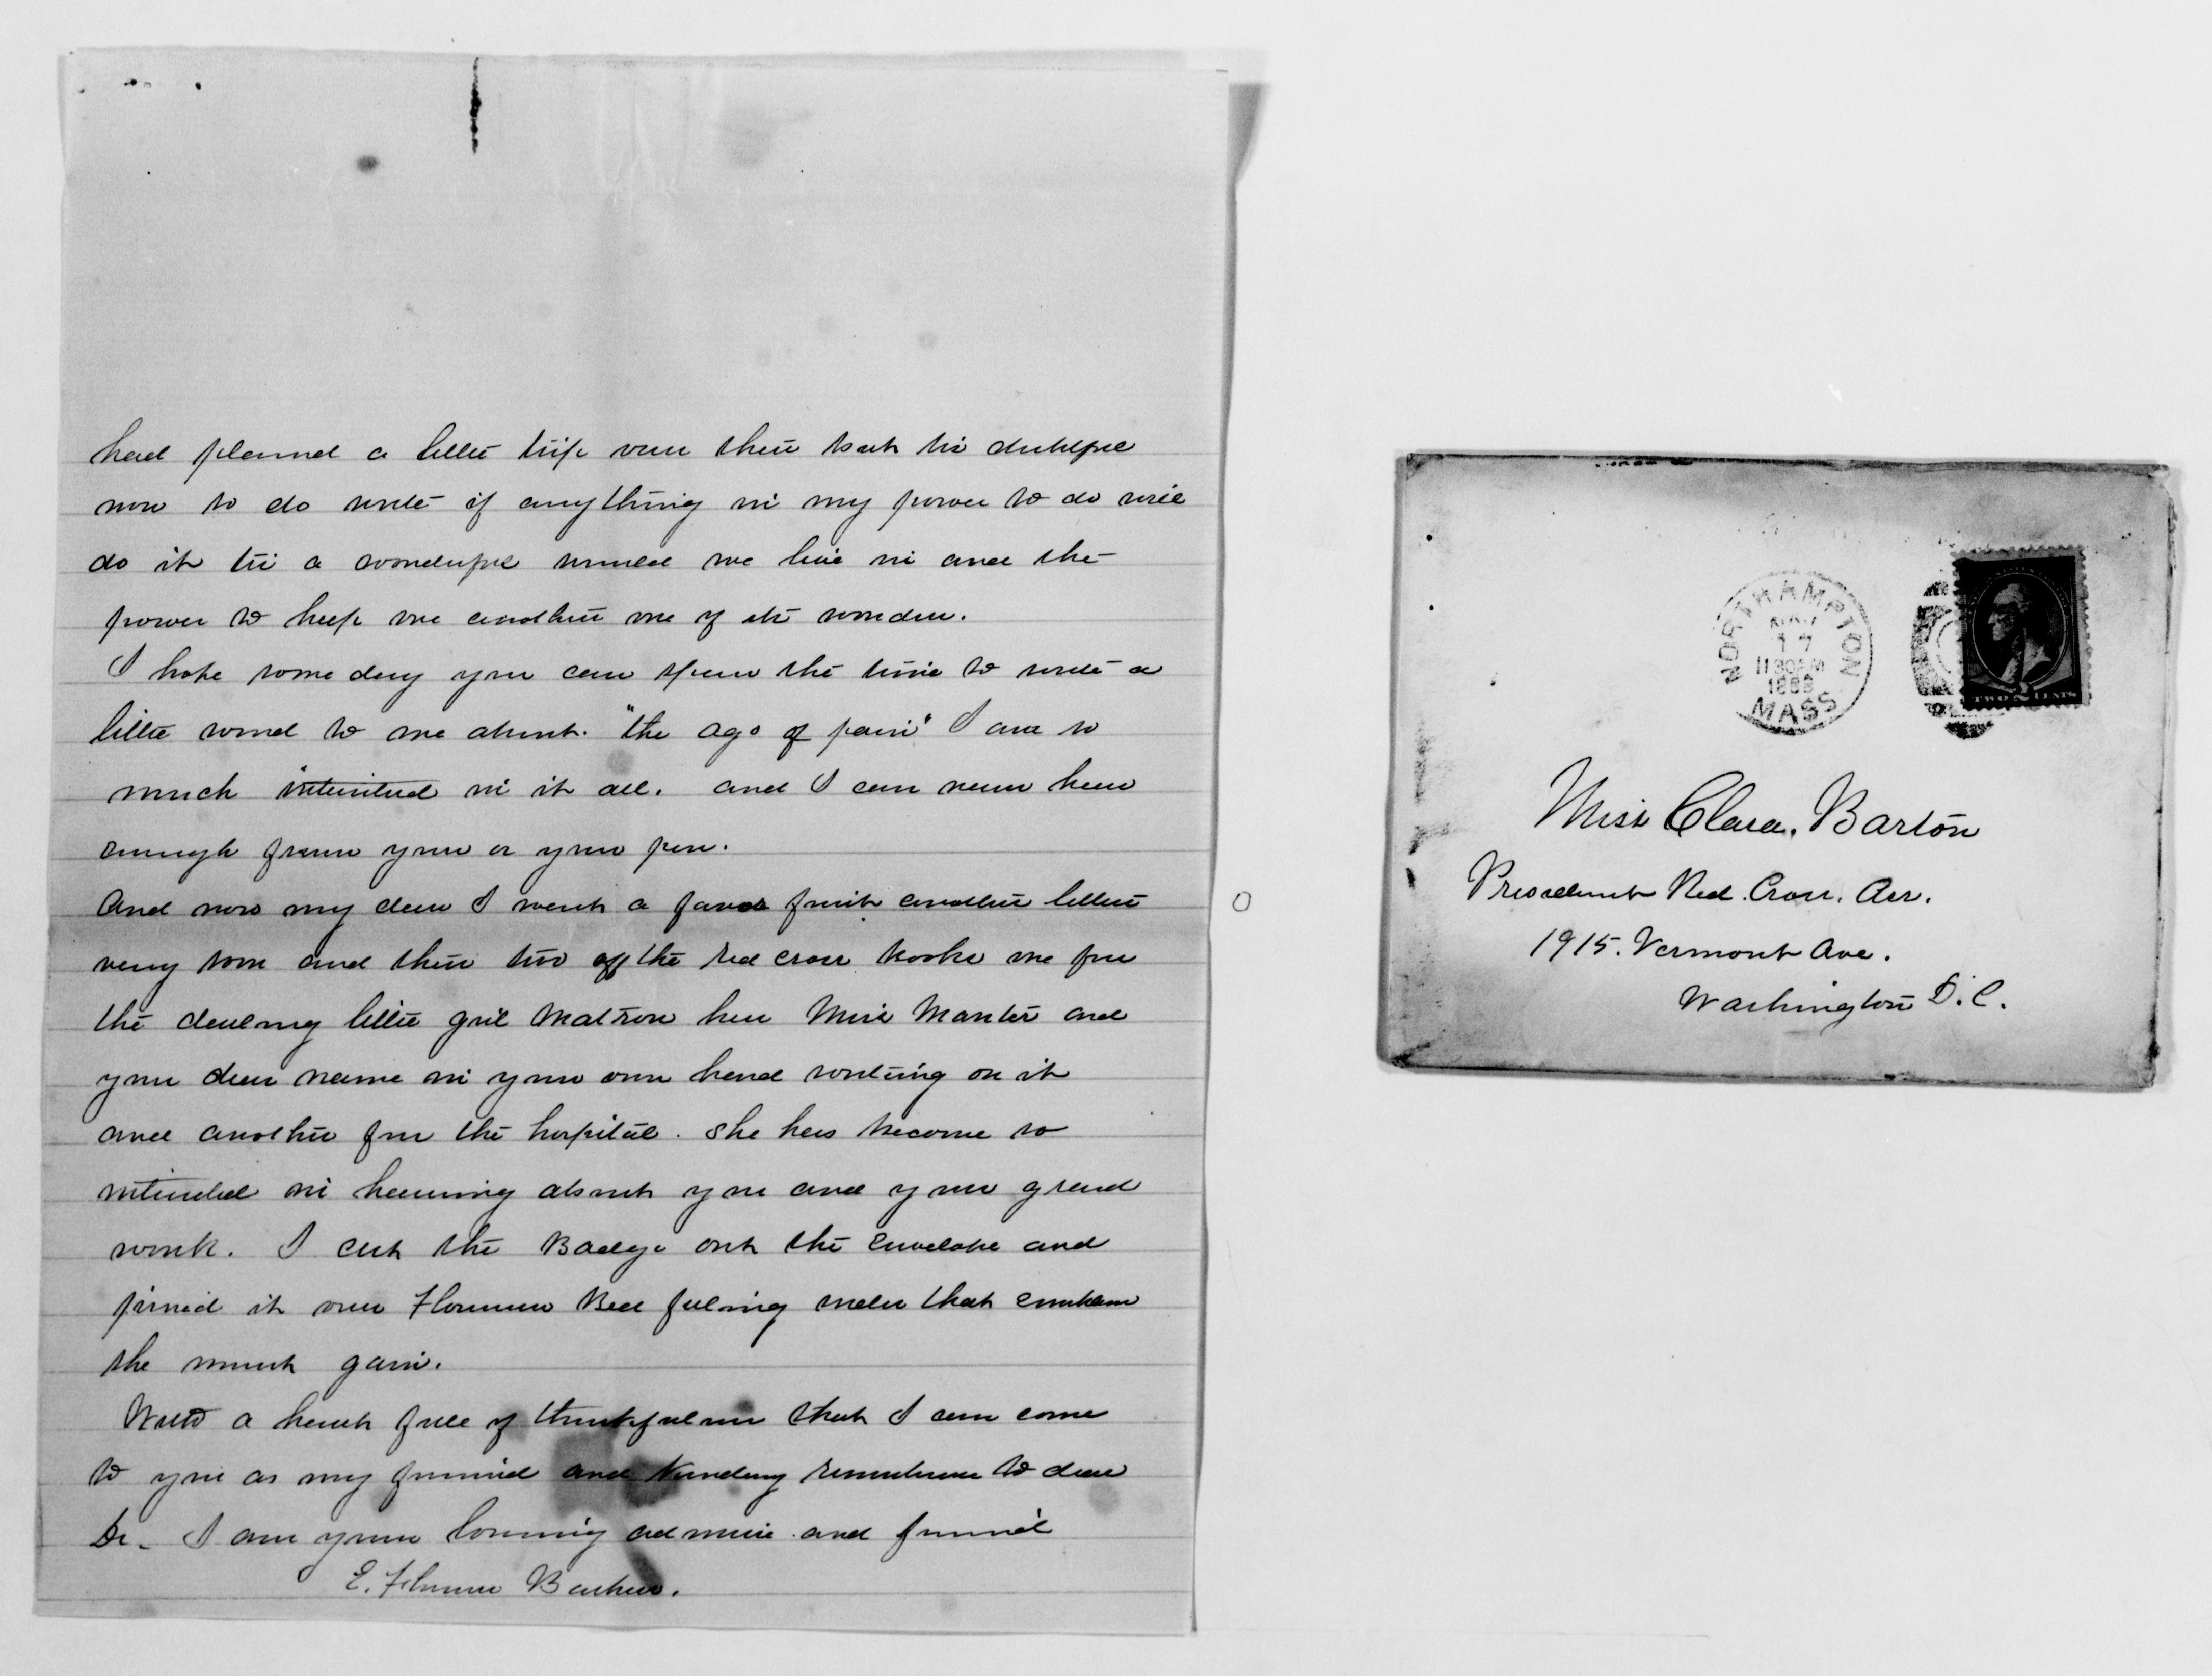 had planned a little trip over there but tis doubtful
now to do write if anything in my power to do will
do it tis a wonderful world we live in and the
power to help one another one of its wonders.
I hope some day you can spare the time to write a
little word to me about. "the ago of pain" I am so
much interested in it all. and I can never hear
enough from you or your pen.
And now my dear I want a favor first another letter
very soon and then two of the red cross books one for
the darling little girl Matron here Miss Manter and
your dear name in your own hand writing on it
and another for the hospital. She has become so
interested in hearing about you and your grand
work. I cut the Badge out the Envelope and
pined it over Florence Bed feeling under that emblem
she must gain.
With a heart full of thankfulness that I can come
to you as my friend and remembrance to dear
Dr. I am your loving admirer and friend
E. Florence Barker.
NORTHAMPTON
17
1130AM
188
MASS
TWO 2 CENTS
Miss Clara. Barton
President Red. Cross. Ass.
1915. Vermont Ave.
Washington D.C.